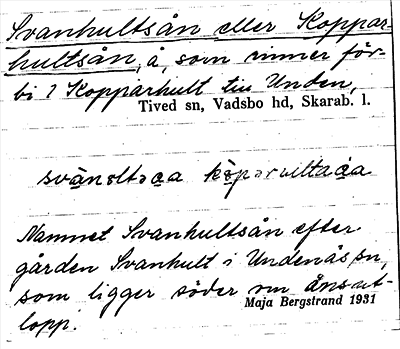 Svanhultsån eller Koppar-
hultsån, å, som rinner för-
bi 2 Kopparhult till Unden,
Tived sn, Vadsbo hd, Skarab. l.
Namnet Svanhultsån efter
gården Svanhult i Undenäs sn,
som ligger söder om åns ut-
lopp.
Maja Bergstrand 1931